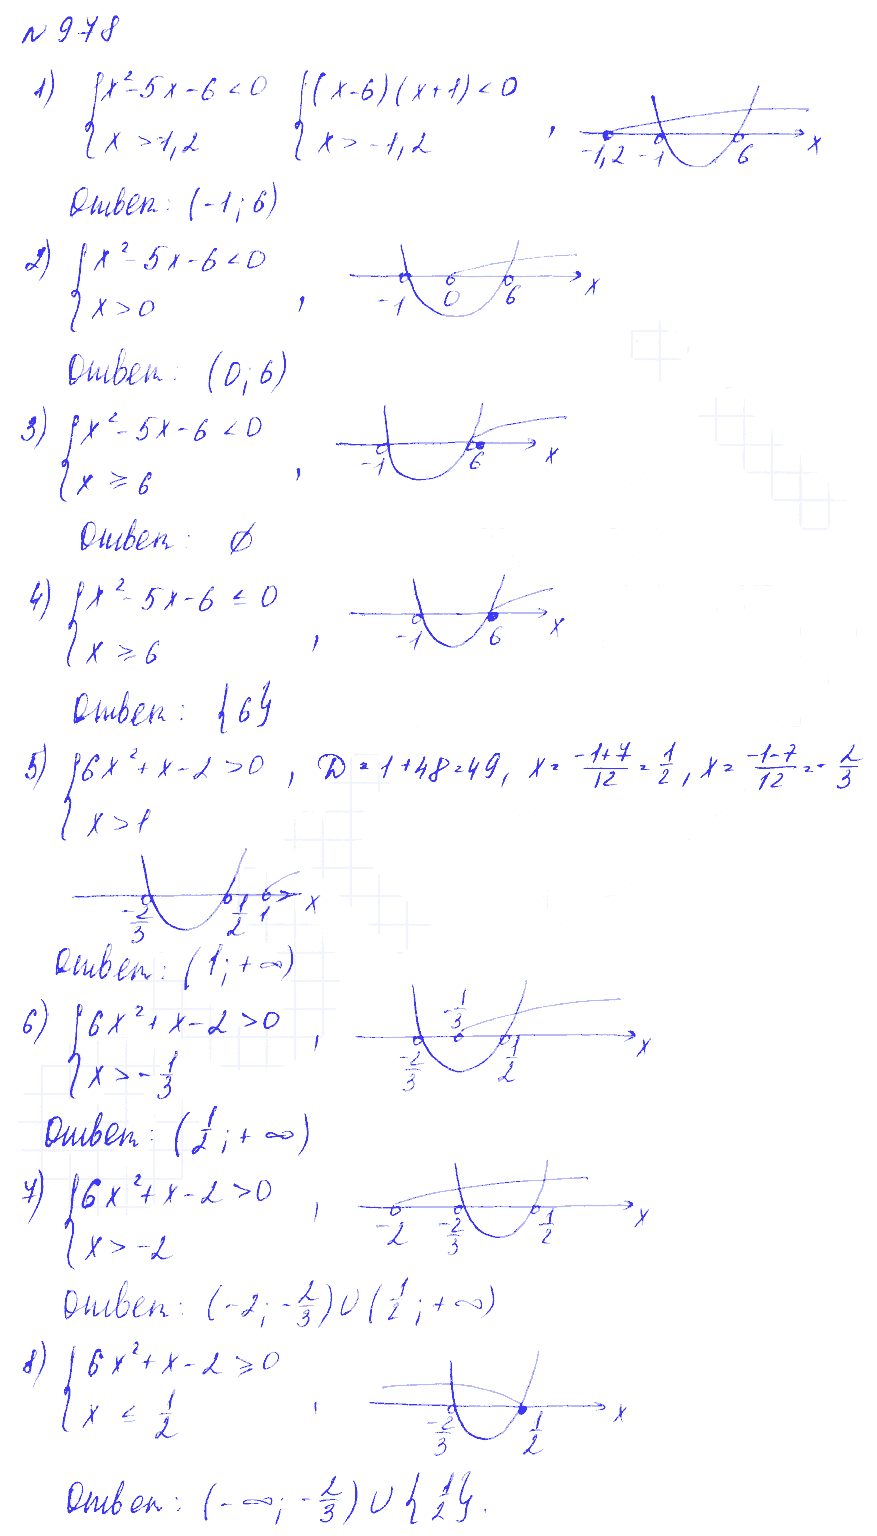 № 978
1) { x² - 5x - 6 < 0 { (x - 6)(x + 1) < 0
x > -1,2 x > -1,2 ,
-1,2 -1 6 x
Ответ: (-1; 6)
2) { x² - 5x - 6 < 0
x > 0 ,
-1 0 6 x
Ответ: (0; 6)
3) { x² - 5x - 6 < 0
x ≥ 6 ,
-1 6 x
Ответ: ∅
4) { x² - 5x - 6 ≤ 0
x ≥ 6 ,
-1 6 x
Ответ: {6}
5) { 6x² + x - 2 > 0 , D = 1 + 48 = 49, x = (-1+7)/12 = 1/2, x = (-1-7)/12 = -2/3
x > 1
-2/3 1/2 1 x
Ответ: (1; +∞)
6) { 6x² + x - 2 > 0 ,
x > -1/3
-2/3 -1/3 1/2 x
Ответ: (1/2; +∞)
7) { 6x² + x - 2 > 0 ,
x > -2
-2 -2/3 1/2 x
Ответ: (-2; -2/3) ∪ (1/2; +∞)
8) { 6x² + x - 2 ≥ 0
x ≤ 1/2 ,
-2/3 1/2 x
Ответ: (-∞; -2/3) ∪ {1/2}.